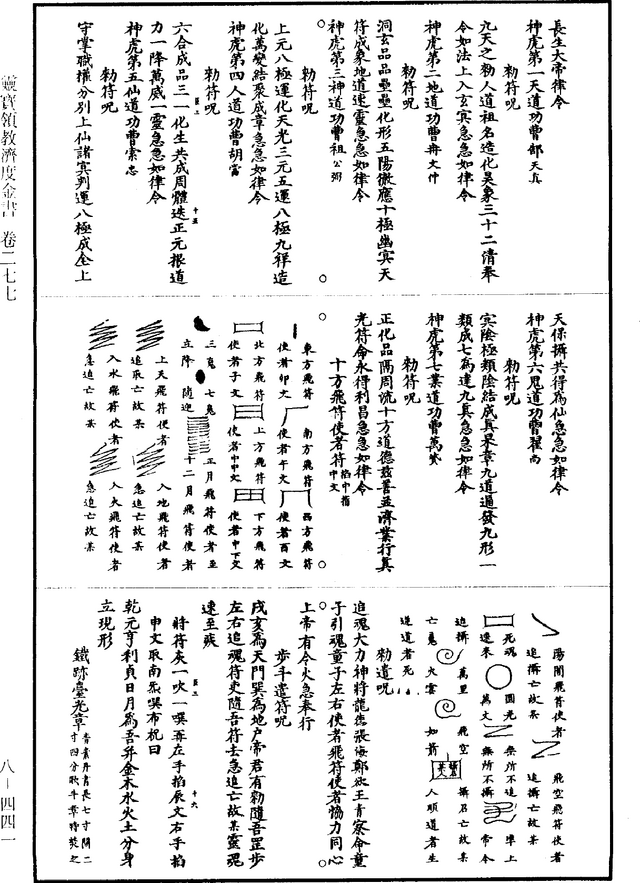 靈寶領教濟度金書 卷二七七
八－四四一
長生大帝律令
神虎第一天道功曹郝天真
勑符呪
九天之勑人道祖名造化吳象三十二清奉
令如法上入玄冥急急如律令
神虎第二地道功曹冉文仲
勑符呪
洞玄品品壘壘化形五陽徹應十極幽冥天
符成象地道速靈急急如律令
神虎第三神道功曹祖公弼
勑符呪
上元八極運化天光三元五運八極九祥造
化萬變結聚成章急急如律令
神虎第四人道功曹胡富
勑符呪
六合成品三一化生共成周體迭正元根道
力一降萬威一靈急急如律令
神虎第五仙道功曹索忠
勑符呪
守掌職權分別上仙諸冥判運八極成全上
天保擠共得為仙急急如律令
神虎第六鬼道功曹翟尚
勑符呪
冥陰極類陰結成真杲章九道過發九形一
類成七為達九真急急如律令
神虎第七業道功曹萬
勑符呪
正化品隔周流十方道德慈善並濟業行真
光符命永得利昌急急如律令
十方飛符使者符 掐中指中文
東方飛符使者卯文
南方飛符使者午文
西方飛符使者酉文
北方飛符使者子文
上方飛符使者中中文
下方飛符使者中下文
三魂 七魄
立降 隨迎
正月飛符使者至
十二月飛符使者
上天飛符使者
追取亡故某
入地飛符使者
急追亡故某
入水飛符使者
急追亡故某
入火飛符使者
急追亡故某
陽間飛符使者
追攝亡故某
飛空飛符使者
追攝亡故某
死魂 圓光 無所不追 準上
速來 萬丈 無所不攝 帝令
追攝 萬里 飛空 攝召亡故某
亡魂 火雲 如箭 人順道者生
逆道者死
勑遣呪
追魂大力神將龍德張海鄭欲王青察命童
子引魂童子左右使者飛符使者協力同心
上帝有令火急奉行
步斗遣符呪
戌亥為天門巽為地戶帝君有勑隨吾罡步
左右追魂符吏隨吾符去急追亡故某靈魂
速至壇
將符灰一吹一噀再左手掐辰文右手掐
申文取南炁噀布祝曰
乾元亨利貞日月為吾弁金木水火土分身
立現形
鐵跡臺光章 香素丹書長七寸闊二寸四分歌斗章時焚之